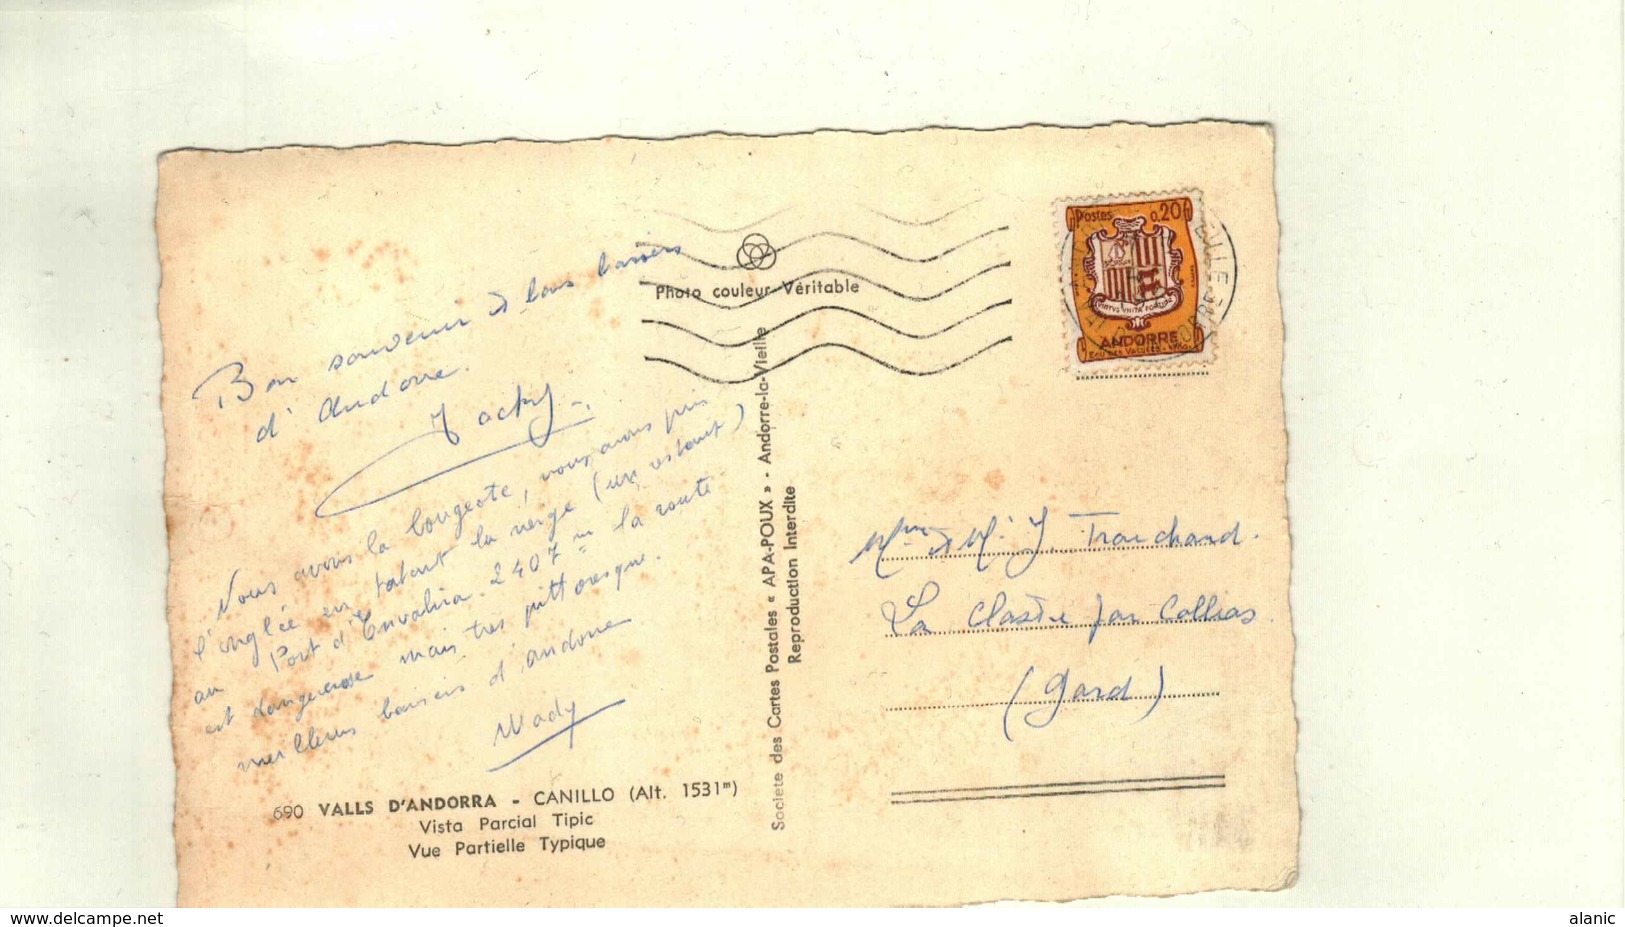 Postes 0.20
VIRTVS VNITA FORTIOR
ANDORRE
Photo couleur Véritable
Bon souvenir & bons baisers
d'Andorre.
Jacky
Nous avons la bougeotte, nous avons pris
l'onglée en tatant la neige (un instant)
au Port d'Envalira 2407m la route
est dangereuse mais très pittoresque.
meilleurs baisers d'andorre
Mady
690 VALLS D'ANDORRA - CANILLO (Alt. 1531m)
Vista Parcial Tipic
Vue Partielle Typique
Societe des Cartes Postales « APA-POUX » - Andorre-la-Vieille
Reproduction Interdite
Mme & M. J. Tranchand.
La Clastre par Collias
(Gard)
www.delcampe.net
alanic